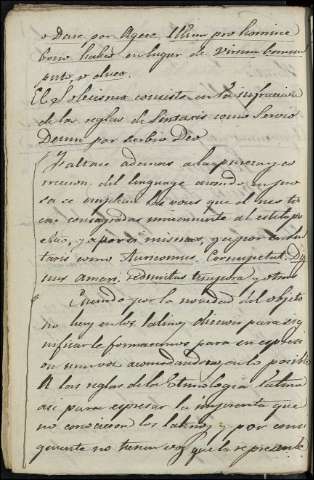 o Dare, por Agere Illum pro homine
bono habeo en lugar de Virum bonum
puto, o duco.
El Solecismo consiste en la infraccion
de las reglas de Sintaxis como Servio
Deum por Servio Deo
Faltase ademas a la pureza y co
rreccion del lenguage cuando en pro
sa se emplean las voces que el uso tie
ne consagradas unicamente al estilo po
etico, ya por si mismas, ya por anti
como Auricomus, Cornupeta,
amans, redimitus tempora y otros
Cuando por la novedad del objeto
no hay en los latinos diccion para sig
nificarle formaremos para ello espresi
on nueva acomodandonos en lo posible
A las reglas de la Etimologia latina
asi para espresar la imprenta que
no conocieron los latinos, y por consi
guiente no tienen voz que la represente